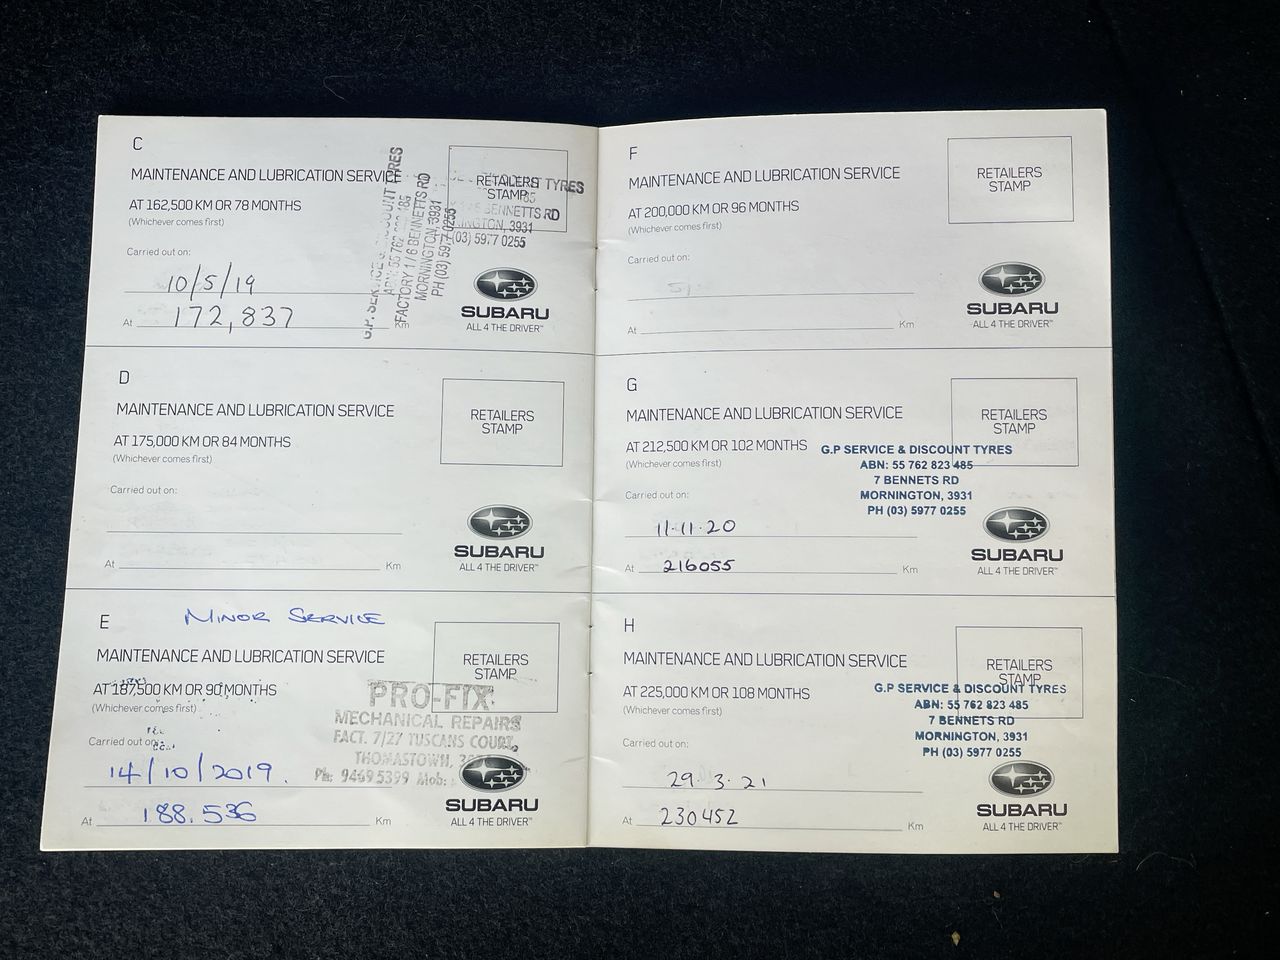 C
MAINTENANCE AND LUBRICATION SERVICE
AT 162,500 KM OR 78 MONTHS
(Whichever comes first)
Carried out on:
10/5/19
At 172,837 Km
RETAILERS
STAMP
G.P. SERVICE & DISCOUNT TYRES
ABN: 55 762 823 485
FACTORY 1/6 BENNETTS RD
MORNINGTON, 3931
PH (03) 5977 0255
TYRES
BENNETTS RD
3931
(03) 5977 0255
SUBARU
ALL 4 THE DRIVER™
D
MAINTENANCE AND LUBRICATION SERVICE
AT 175,000 KM OR 84 MONTHS
(Whichever comes first)
Carried out on:
At Km
RETAILERS
STAMP
SUBARU
ALL 4 THE DRIVER™
E
MINOR SERVICE
MAINTENANCE AND LUBRICATION SERVICE
AT 187,500 KM OR 90 MONTHS
(Whichever comes first)
Carried out on:
14/10/2019.
At 188.536 Km
RETAILERS
STAMP
PRO-FIX
MECHANICAL REPAIRS
FACT. 7/27 TUSCANS COURT,
THOMASTOWN,
Ph: 9469 5399 Mob:
SUBARU
ALL 4 THE DRIVER™
F
MAINTENANCE AND LUBRICATION SERVICE
AT 200,000 KM OR 96 MONTHS
(Whichever comes first)
Carried out on:
At Km
RETAILERS
STAMP
SUBARU
ALL 4 THE DRIVER™
G
MAINTENANCE AND LUBRICATION SERVICE
AT 212,500 KM OR 102 MONTHS
(Whichever comes first)
Carried out on:
11·11·20
At 216055 Km
RETAILERS
STAMP
G.P SERVICE & DISCOUNT TYRES
ABN: 55 762 823 485
7 BENNETS RD
MORNINGTON, 3931
PH (03) 5977 0255
SUBARU
ALL 4 THE DRIVER™
H
MAINTENANCE AND LUBRICATION SERVICE
AT 225,000 KM OR 108 MONTHS
(Whichever comes first)
Carried out on:
29·3·21
At 230452 Km
RETAILERS
STAMP
G.P SERVICE & DISCOUNT TYRES
ABN: 55 762 823 485
7 BENNETS RD
MORNINGTON, 3931
PH (03) 5977 0255
SUBARU
ALL 4 THE DRIVER™